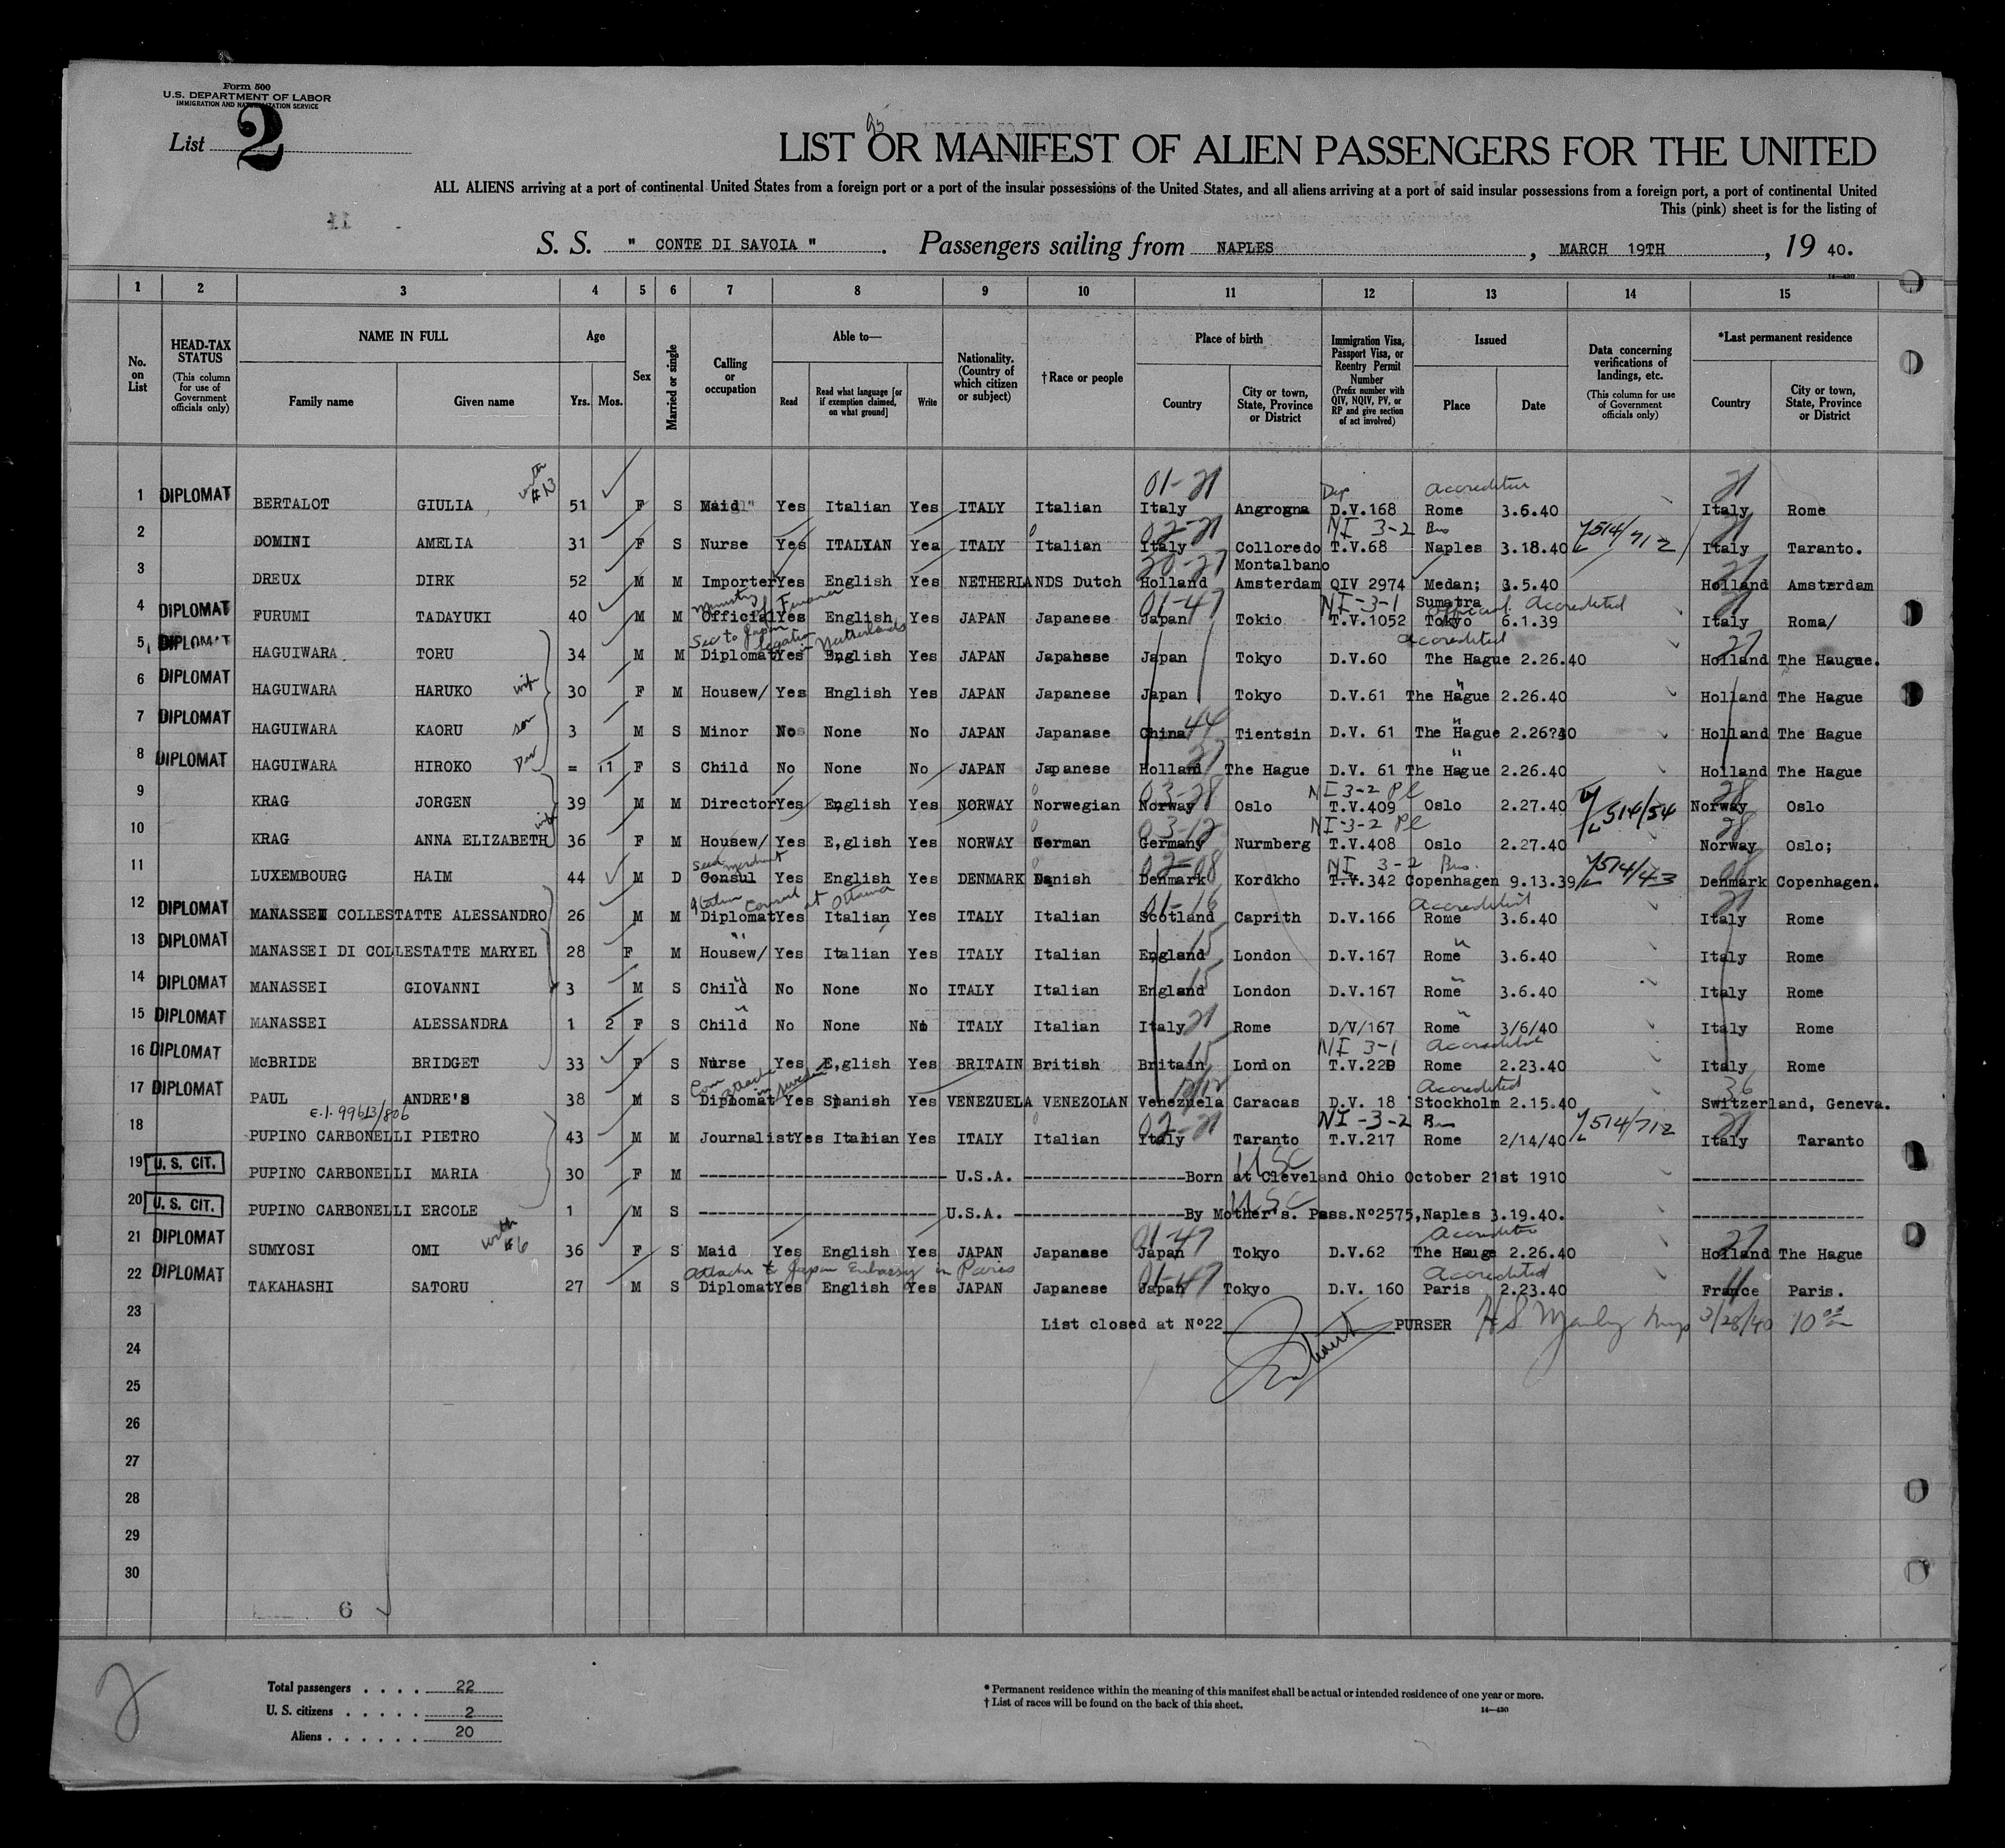 Form 500
U.S. DEPARTMENT OF LABOR
IMMIGRATION AND NATURALIZATION SERVICE
List 2
LIST OR MANIFEST OF ALIEN PASSENGERS FOR THE UNITED
ALL ALIENS arriving at a port of continental United States from a foreign port or a port of the insular possessions of the United States, and all aliens arriving at a port of said insular possessions from a foreign port, a port of continental United
This (pink) sheet is for the listing of
S. S. " CONTE DI SAVOIA ". Passengers sailing from NAPLES, MARCH 19TH, 19 40.
14—430
1 2 3 4 5 6 7 8 9 10 11 12 13 14 15
No. on List
HEAD-TAX STATUS (This column for use of Government officials only)
NAME IN FULL Family name Given name
Age Yrs. Mos.
Sex
Married or single
Calling or occupation
Able to— Read Read what language [or if exemption claimed, on what ground] Write
Nationality. (Country of which citizen or subject)
†Race or people
Place of birth Country City or town, State, Province or District
Immigration Visa, Passport Visa, or Reentry Permit Number (Prefix number with QIV, NQIV, PV, or RP and give section of act involved)
Issued Place Date
Data concerning verifications of landings, etc. (This column for use of Government officials only)
*Last permanent residence Country City or town, State, Province or District
with #13 01-21 Dip Accredited 21
1 DIPLOMAT BERTALOT GIULIA 51 F S Maid Yes Italian Yes ITALY Italian Italy Angrogna D.V.168 Rome 3.6.40 Italy Rome
02-21 NI 3-2 Bus 7514/712 21
2 DOMINI AMELIA 31 F S Nurse Yes ITALYAN Yea ITALY Italian Italy Colloredo T.V.68 Naples 3.18.40 Italy Taranto.
Montalbano
3 DREUX DIRK 52 M M Importer Yes English Yes NETHERLANDS Dutch Holland Amsterdam QIV 2974 Medan; 3.5.40 Holland Amsterdam
Ministry of Finance 01-47 NI-3-1 Sumatra Official Accredited 21
4 DIPLOMAT FURUMI TADAYUKI 40 M M Official Yes English Yes JAPAN Japanese Japan Tokio T.V.1052 Tokyo 6.1.39 Italy Roma/
Sec to Japan legation in Netherlands Accredited 27
5 DIPLOMAT HAGUIWARA TORU 34 M M Diplomat Yes English Yes JAPAN Japanese Japan Tokyo D.V.60 The Hague 2.26.40 Holland The Haugue.
6 DIPLOMAT HAGUIWARA HARUKO wife 30 F M Housew/ Yes English Yes JAPAN Japanese Japan Tokyo D.V.61 The Hague 2.26.40 Holland The Hague
7 DIPLOMAT HAGUIWARA KAORU son 3 M S Minor No None No JAPAN Japanase China 44 Tientsin D.V. 61 The Hague 2.26?40 Holland The Hague
8 DIPLOMAT HAGUIWARA HIROKO = 11 F S Child No None No JAPAN Japanese Holland 27 The Hague D.V. 61 The Hague 2.26.40 Holland The Hague
03-28 NI 3-2 Pl 514/54 28
9 KRAG JORGEN 39 M M Director Yes English Yes NORWAY Norwegian Norway Oslo T.V.409 Oslo 2.27.40 Norway Oslo
wife 03-12 NI-3-2 Pl 28
10 KRAG ANNA ELIZABETH 36 F M Housew/ Yes E,glish Yes NORWAY German Germany Nurmberg T.V.408 Oslo 2.27.40 Norway Oslo;
Seed merchant 02-08 NI 3-2 Bus. 7514/43
11 LUXEMBOURG HAIM 44 M D Consul Yes English Yes DENMARK Danish Denmark Kordkho T.V.342 Copenhagen 9.13.39 Denmark Copenhagen.
Italian Consul at Ottawa 01-16 Accredited 21
12 DIPLOMAT MANASSEI COLLESTATTE ALESSANDRO 26 M M Diplomat Yes Italian Yes ITALY Italian Scotland Caprith D.V.166 Rome 3.6.40 Italy Rome
13 DIPLOMAT MANASSEI DI COLLESTATTE MARYEL 28 F M Housew/ Yes Italian Yes ITALY Italian England 15 London D.V.167 Rome 3.6.40 Italy Rome
14 DIPLOMAT MANASSEI GIOVANNI 3 M S Child No None No ITALY Italian England 15 London D.V.167 Rome 3.6.40 Italy Rome
15 DIPLOMAT MANASSEI ALESSANDRA 1 2 F S Child No None No ITALY Italian Italy 21 Rome D/V/167 Rome 3/6/40 Italy Rome
15 NI 3-1 Accredited
16 DIPLOMAT McBRIDE BRIDGET 33 F S Nurse Yes E,glish Yes BRITAIN British Britain London T.V.220 Rome 2.23.40 Italy Rome
Com attache in Sweden Accredited 36
17 DIPLOMAT PAUL ANDRE'S 38 M S Diplomat Yes Spanish Yes VENEZUELA VENEZOLAN Venezuela Caracas D.V. 18 Stockholm 2.15.40 Switzerland, Geneva.
E.1. 99613/806 02-21 NI-3-2 Bus 7514/712 21
18 PUPINO CARBONELLI PIETRO 43 M M Journalist Yes Italian Yes ITALY Italian Italy Taranto T.V.217 Rome 2/14/40 Italy Taranto
USC
19 U. S. CIT. PUPINO CARBONELLI MARIA 30 F M ---------- U.S.A. ----------Born at Cleveland Ohio October 21st 1910 ----------
USC
20 U. S. CIT. PUPINO CARBONELLI ERCOLE 1 M S ---------- U.S.A. ----------By Mother's. Pass.Nº2575,Naples 3.19.40. ----------
with #6 01-47 Accredited 27
21 DIPLOMAT SUMYOSI OMI 36 F S Maid Yes English Yes JAPAN Japanase Japan Tokyo D.V.62 The Hauge 2.26.40 Holland The Hague
Attache to Japan Embassy in Paris 01-47 Accredited 11
22 DIPLOMAT TAKAHASHI SATORU 27 M S Diplomat Yes English Yes JAPAN Japanese Japan Tokyo D.V. 160 Paris 2.23.40 France Paris.
23 List closed at Nº22 PURSER 3/28/40 10
24
25
26
27
28
29
30
6
2
Total passengers . . . . 22
U. S. citizens . . . . . 2
Aliens . . . . . . 20
* Permanent residence within the meaning of this manifest shall be actual or intended residence of one year or more.
† List of races will be found on the back of this sheet.
14—430